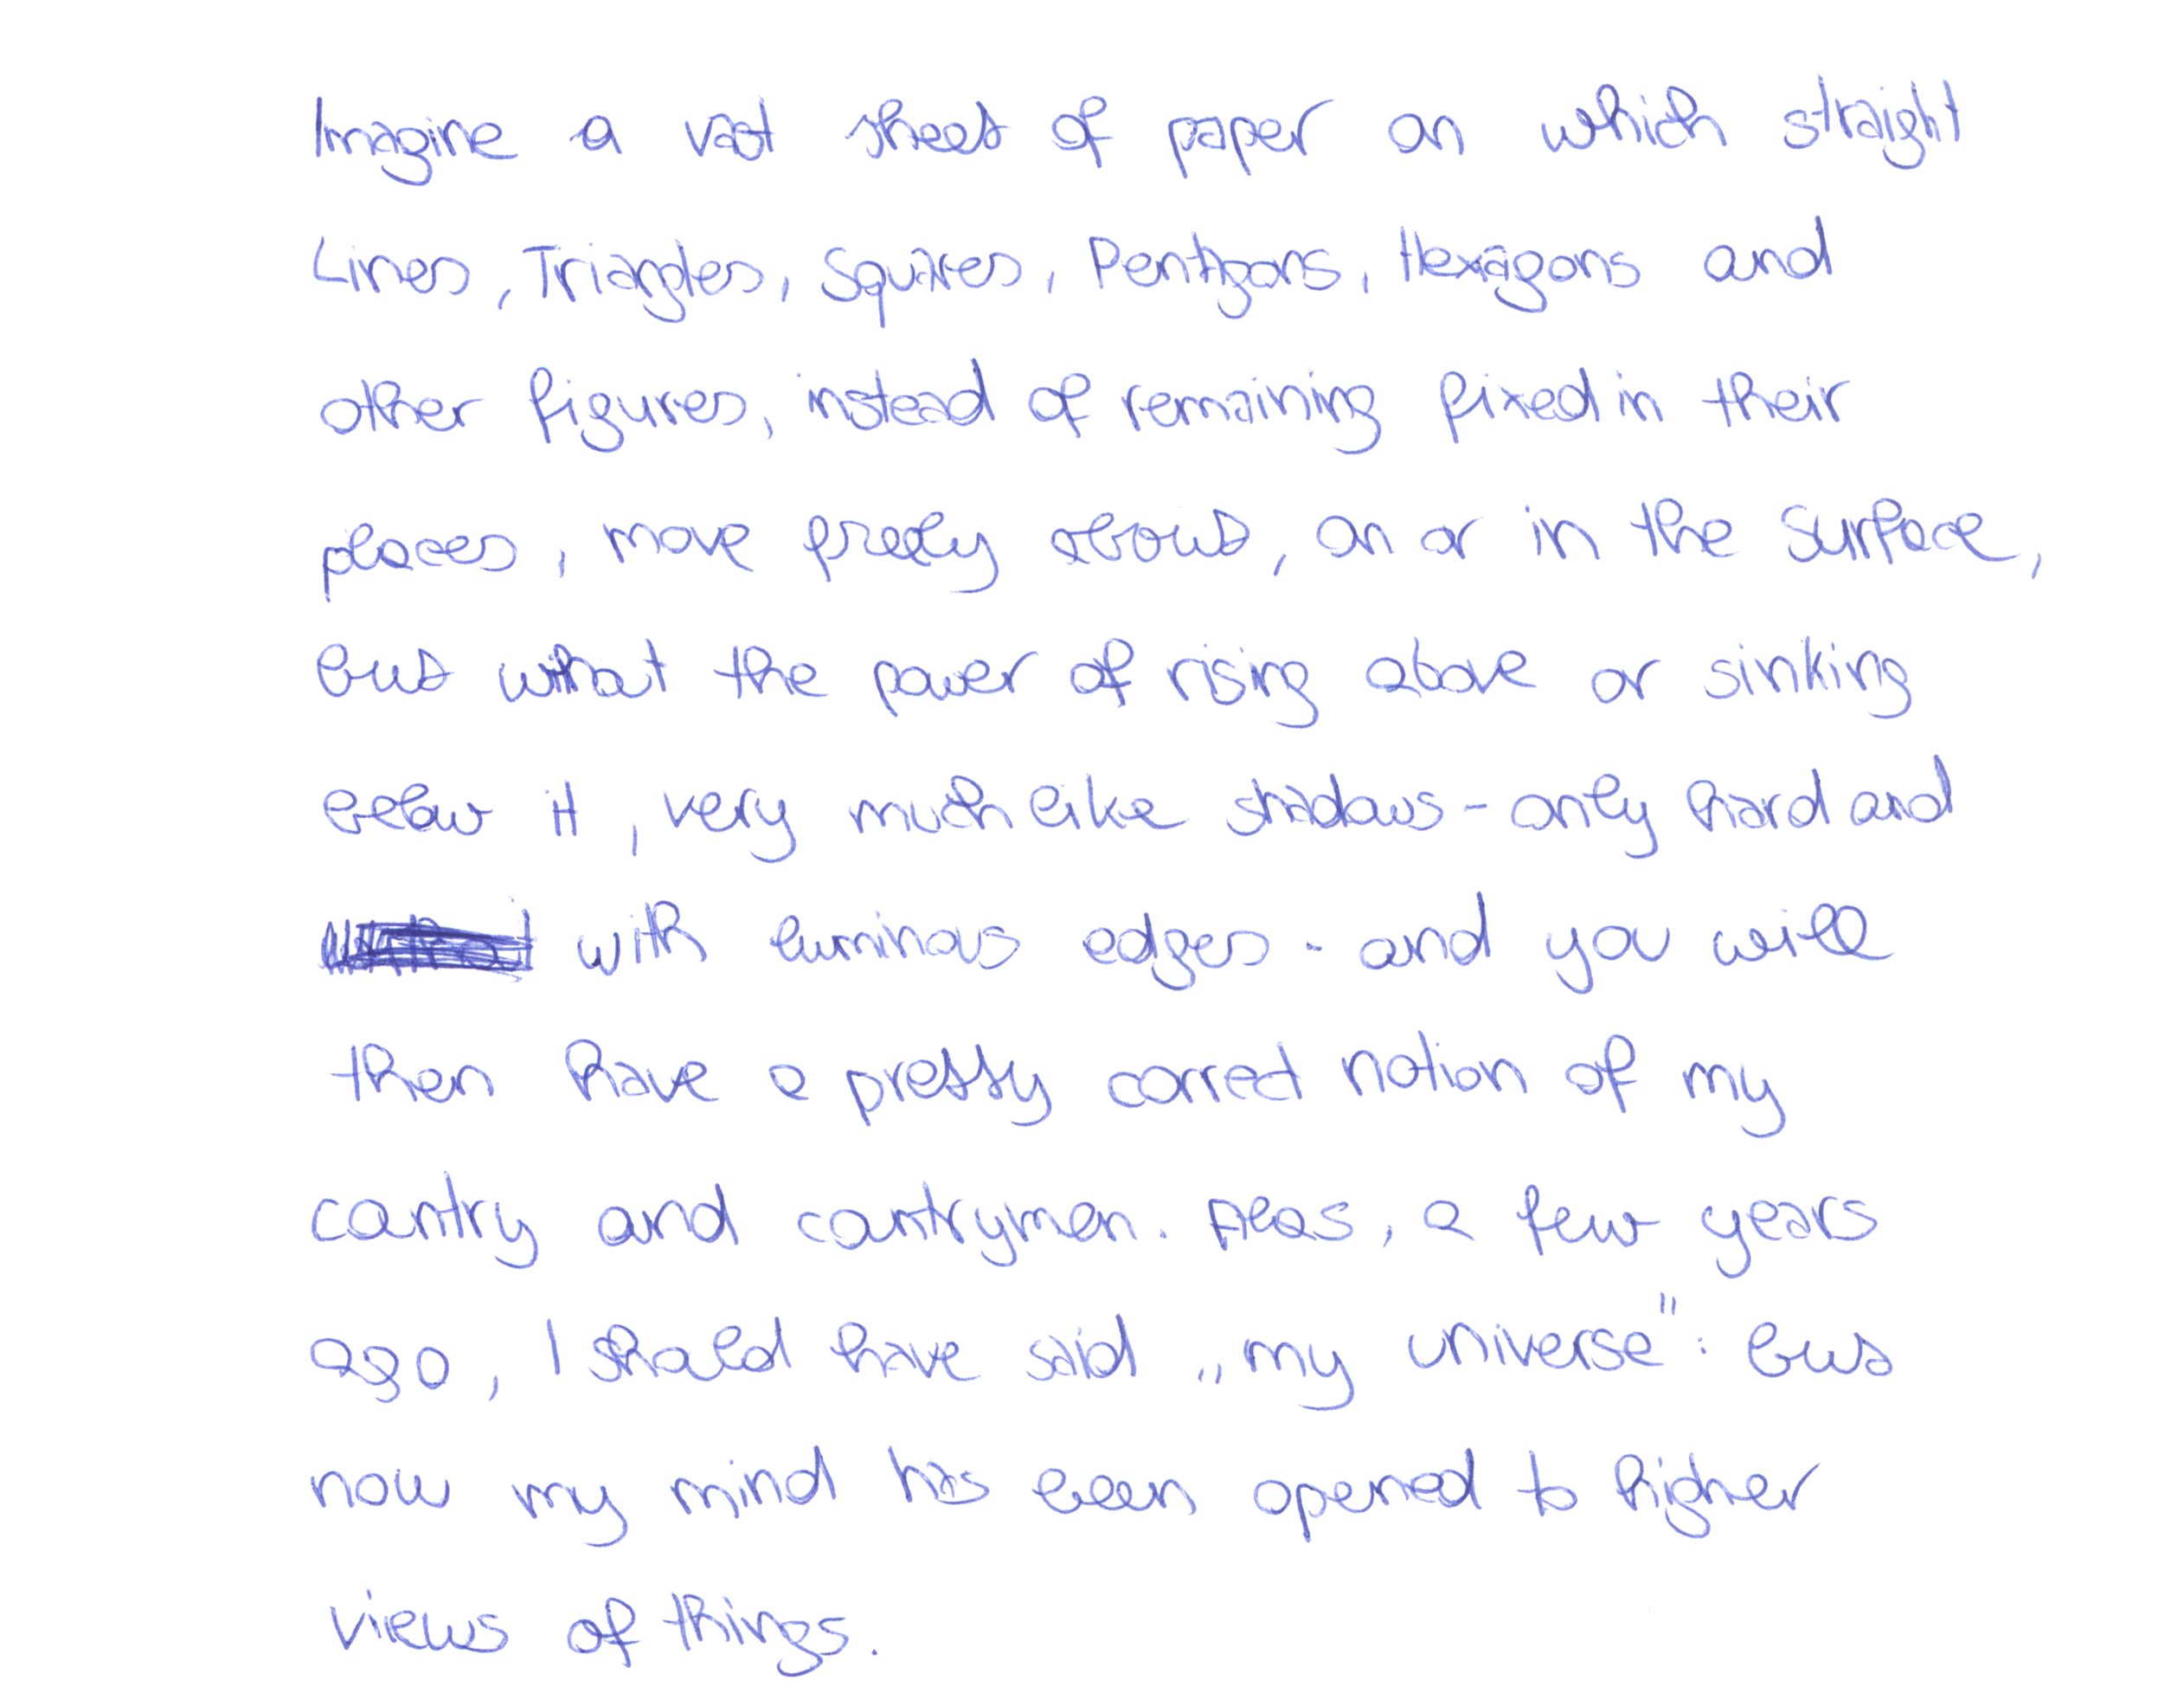 Imagine a vast sheet of paper on which straight
Lines, Triangles, Squares, Pentagons, Hexagons and
other figures, instead of remaining fixed in their
places, move freely about, on or in the surface,
but without the power of rising above or sinking
below it, very much like shadows - only hard and
with luminous edges - and you will
then have a pretty correct notion of my
country and countrymen. Alas, a few years
ago, I should have said „my universe": but
now my mind has been opened to higher
views of things.